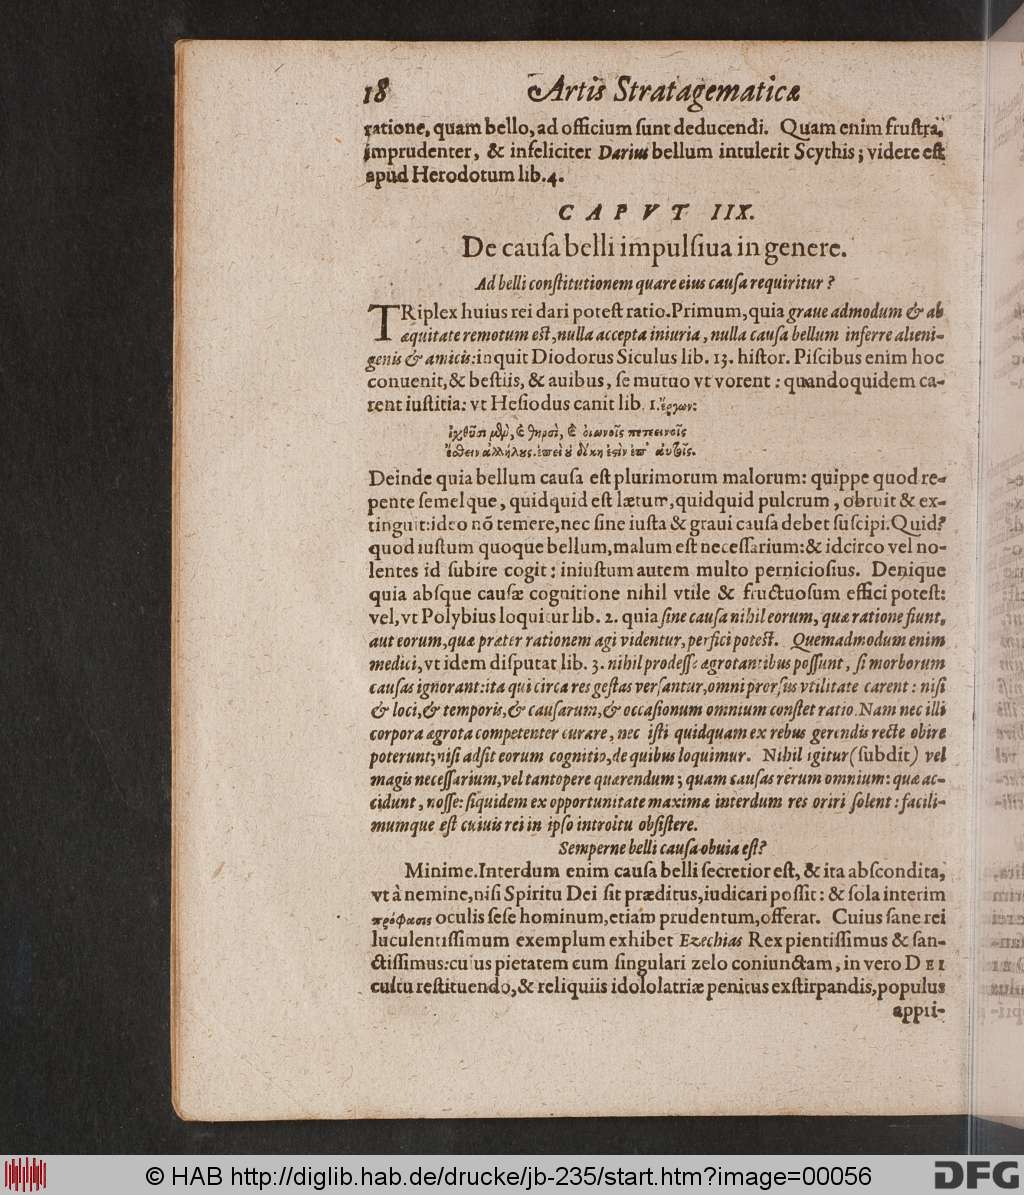 18 Artis Stratagematicæ
ratione, quam bello, ad officium ſunt deducendi. Quam enim fruſtrà,
imprudenter, & infeliciter Darius bellum intulerit Scythis; videre eſt
apud Herodotum lib. 4.
CAPVT IIX.
De cauſa belli impulſiua in genere.
Ad belli conſtitutionem quare eius cauſa requiritur?
TRiplex huius rei dari poteſt ratio. Primum, quia graue admodum & ab
æquitate remotum est, nulla accepta iniuria, nulla cauſa bellum inferre alieni-
genis & amicis: inquit Diodorus Siculus lib. 13. hiſtor. Piſcibus enim hoc
conuenit, & beſtiis, & auibus, ſe mutuo vt vorent: quandoquidem ca-
rent iuſtitia: vt Heſiodus canit lib. 1. ἔργων:
ἰχθύσι μὲν, καὶ θηρσὶ, καὶ οἰωνοῖς πετεεινοῖς
ἔσθειν ἀλλήλους. ἐπεὶ οὐ δίκη ἐστὶν ἐπ' αὐτοῖς.
Deinde quia bellum cauſa eſt plurimorum malorum: quippe quod re-
pente ſemelque, quidquid eſt lætum, quidquid pulcrum, obruit & ex-
tinguit: ideo nõ temere, nec ſine iuſta & graui cauſa debet ſuſcipi. Quid?
quod iuſtum quoque bellum, malum eſt neceſſarium: & idcirco vel no-
lentes id ſubire cogit: iniuſtum autem multo pernicioſius. Denique
quia abſque cauſæ cognitione nihil vtile & fructuoſum effici poteſt:
vel, vt Polybius loquitur lib. 2. quia ſine cauſa nihil eorum, quæ ratione fiunt,
aut eorum, quæ præter rationem agi videntur, perfici potest. Quemadmodum enim
medici, vt idem diſputat lib. 3. nihil prodeſſe ægrotantibus poſſunt, ſi morborum
cauſas ignorant: ita qui circa res geſtas verſantur, omni prorſus vtilitate carent: niſi
& loci, & temporis, & cauſarum, & occaſionum omnium conſtet ratio. Nam nec illi
corpora ægrota competenter curare, nec iſti quidquam ex rebus gerendis recte obire
poterunt; niſi adſit eorum cognitio, de quibus loquimur. Nihil igitur (ſubdit) vel
magis neceſſarium, vel tantopere quærendum; quam cauſas rerum omnium: quæ ac-
cidunt, noſſe: ſiquidem ex opportunitate maximæ interdum res oriri ſolent: facili-
mumque eſt cuiuis rei in ipſo introitu obſiſtere.
Semperne belli cauſa obuia eſt?
Minime. Interdum enim cauſa belli ſecretior eſt, & ita abſcondita,
vt à nemine, niſi Spiritu Dei ſit præditus, iudicari poſſit: & ſola interim
πρόφασις oculis ſeſe hominum, etiam prudentum, offerat. Cuius ſane rei
luculentiſſimum exemplum exhibet Ezechias Rex pientiſſimus & ſan-
ctiſſimus: cuius pietatem cum ſingulari zelo coniunctam, in vero DEI
cultu reſtituendo, & reliquiis idololatriæ penitus exſtirpandis, populus
appii-
© HAB http://diglib.hab.de/drucke/jb-235/start.htm?image=00056
DFG